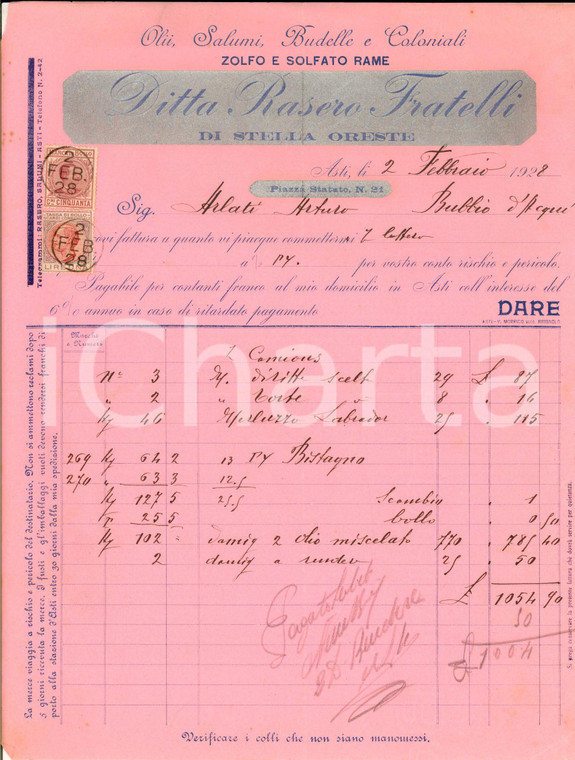 Olii, Salumi, Budelle e Coloniali
ZOLFO E SOLFATO RAME
Ditta Rasero Fratelli
DI STELLA ORESTE
Asti, li 2 Febbraio 1928
Piazza Statuto, N. 21
Sig. Arlati Arturo Bubbio d'Acqui
ovi fattura a quanto vi piacque commettermi
a PV per vostro conto rischio e pericolo.
Pagabile per contanti franco al mio domicilio in Asti coll'interesse del
6% annuo in caso di ritardato pagamento
DARE
Telegrammi: RASERO, SALUMI - ASTI - Telefono N. 2-42
2 FEB. 28
CINQUANTA
2 FEB 28
LIRE
Marche e Numeri
Z Camions
N° 3 M. diritti scelt 29 £ 87
" 2 " torte " 8 " 16
Kg 46 Merluzzo Labrador 25 " 115
269 Kg 64 2 13 PV Bistagno
270 " 63 3 12.5
Kg 127 5 25.5 Scambio " 1
255 bollo " 0 50
Kg 102 damig 2 olio miscelato 770 " 785 40
2 damig a render 25 " 50
£ 1054 90
50
£ 1004
La merce viaggia a rischio e pericolo del destinatario. Non si ammettono reclami dopo
5 giorni ricevuta la merce. I fusti e gl'imballaggi vuoti devono rendersi franchi di
porto alla stazione d'Asti entro 30 giorni dalla mia spedizione.
Si prega conservare la presente fattura che dovrà servire per quietanza.
Verificare i colli che non siano manomessi.
iCharta